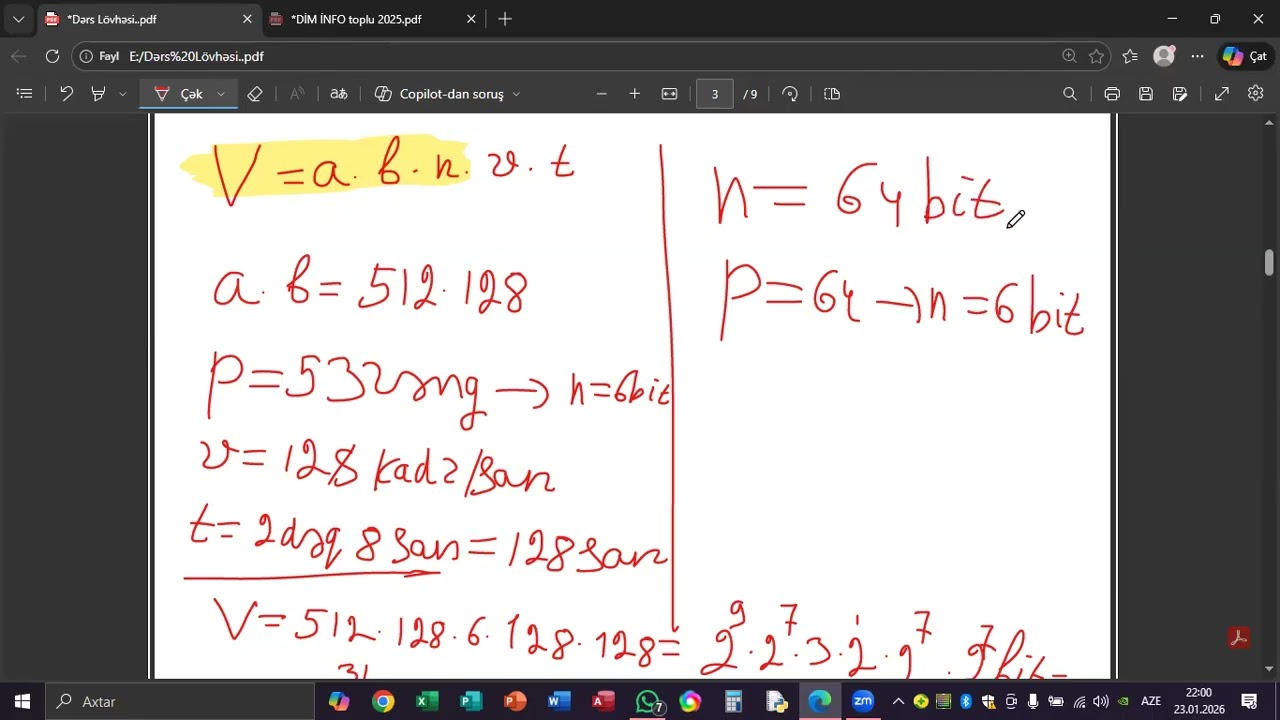 *Dərs Lövhəsi..pdf
*DİM İNFO toplu 2025.pdf
Fayl E:/Dərs%20Lövhəsi..pdf
Çat
Çək
Copilot-dan soruş
3 / 9
V = a. b. n. v. t
a. b = 512. 128
P = 532 rəng → n = 6 bit
v = 128 kadr/san
t = 2 dəq 8 san = 128 san
V = 512. 128. 6. 128. 128 = 2⁹. 2⁷. 3. 2¹. 2⁷. 2⁷ bit =
31
n = 64 bit
P = 64 → n = 6 bit
Axtar
7
AZE
22:00
23.01.2026